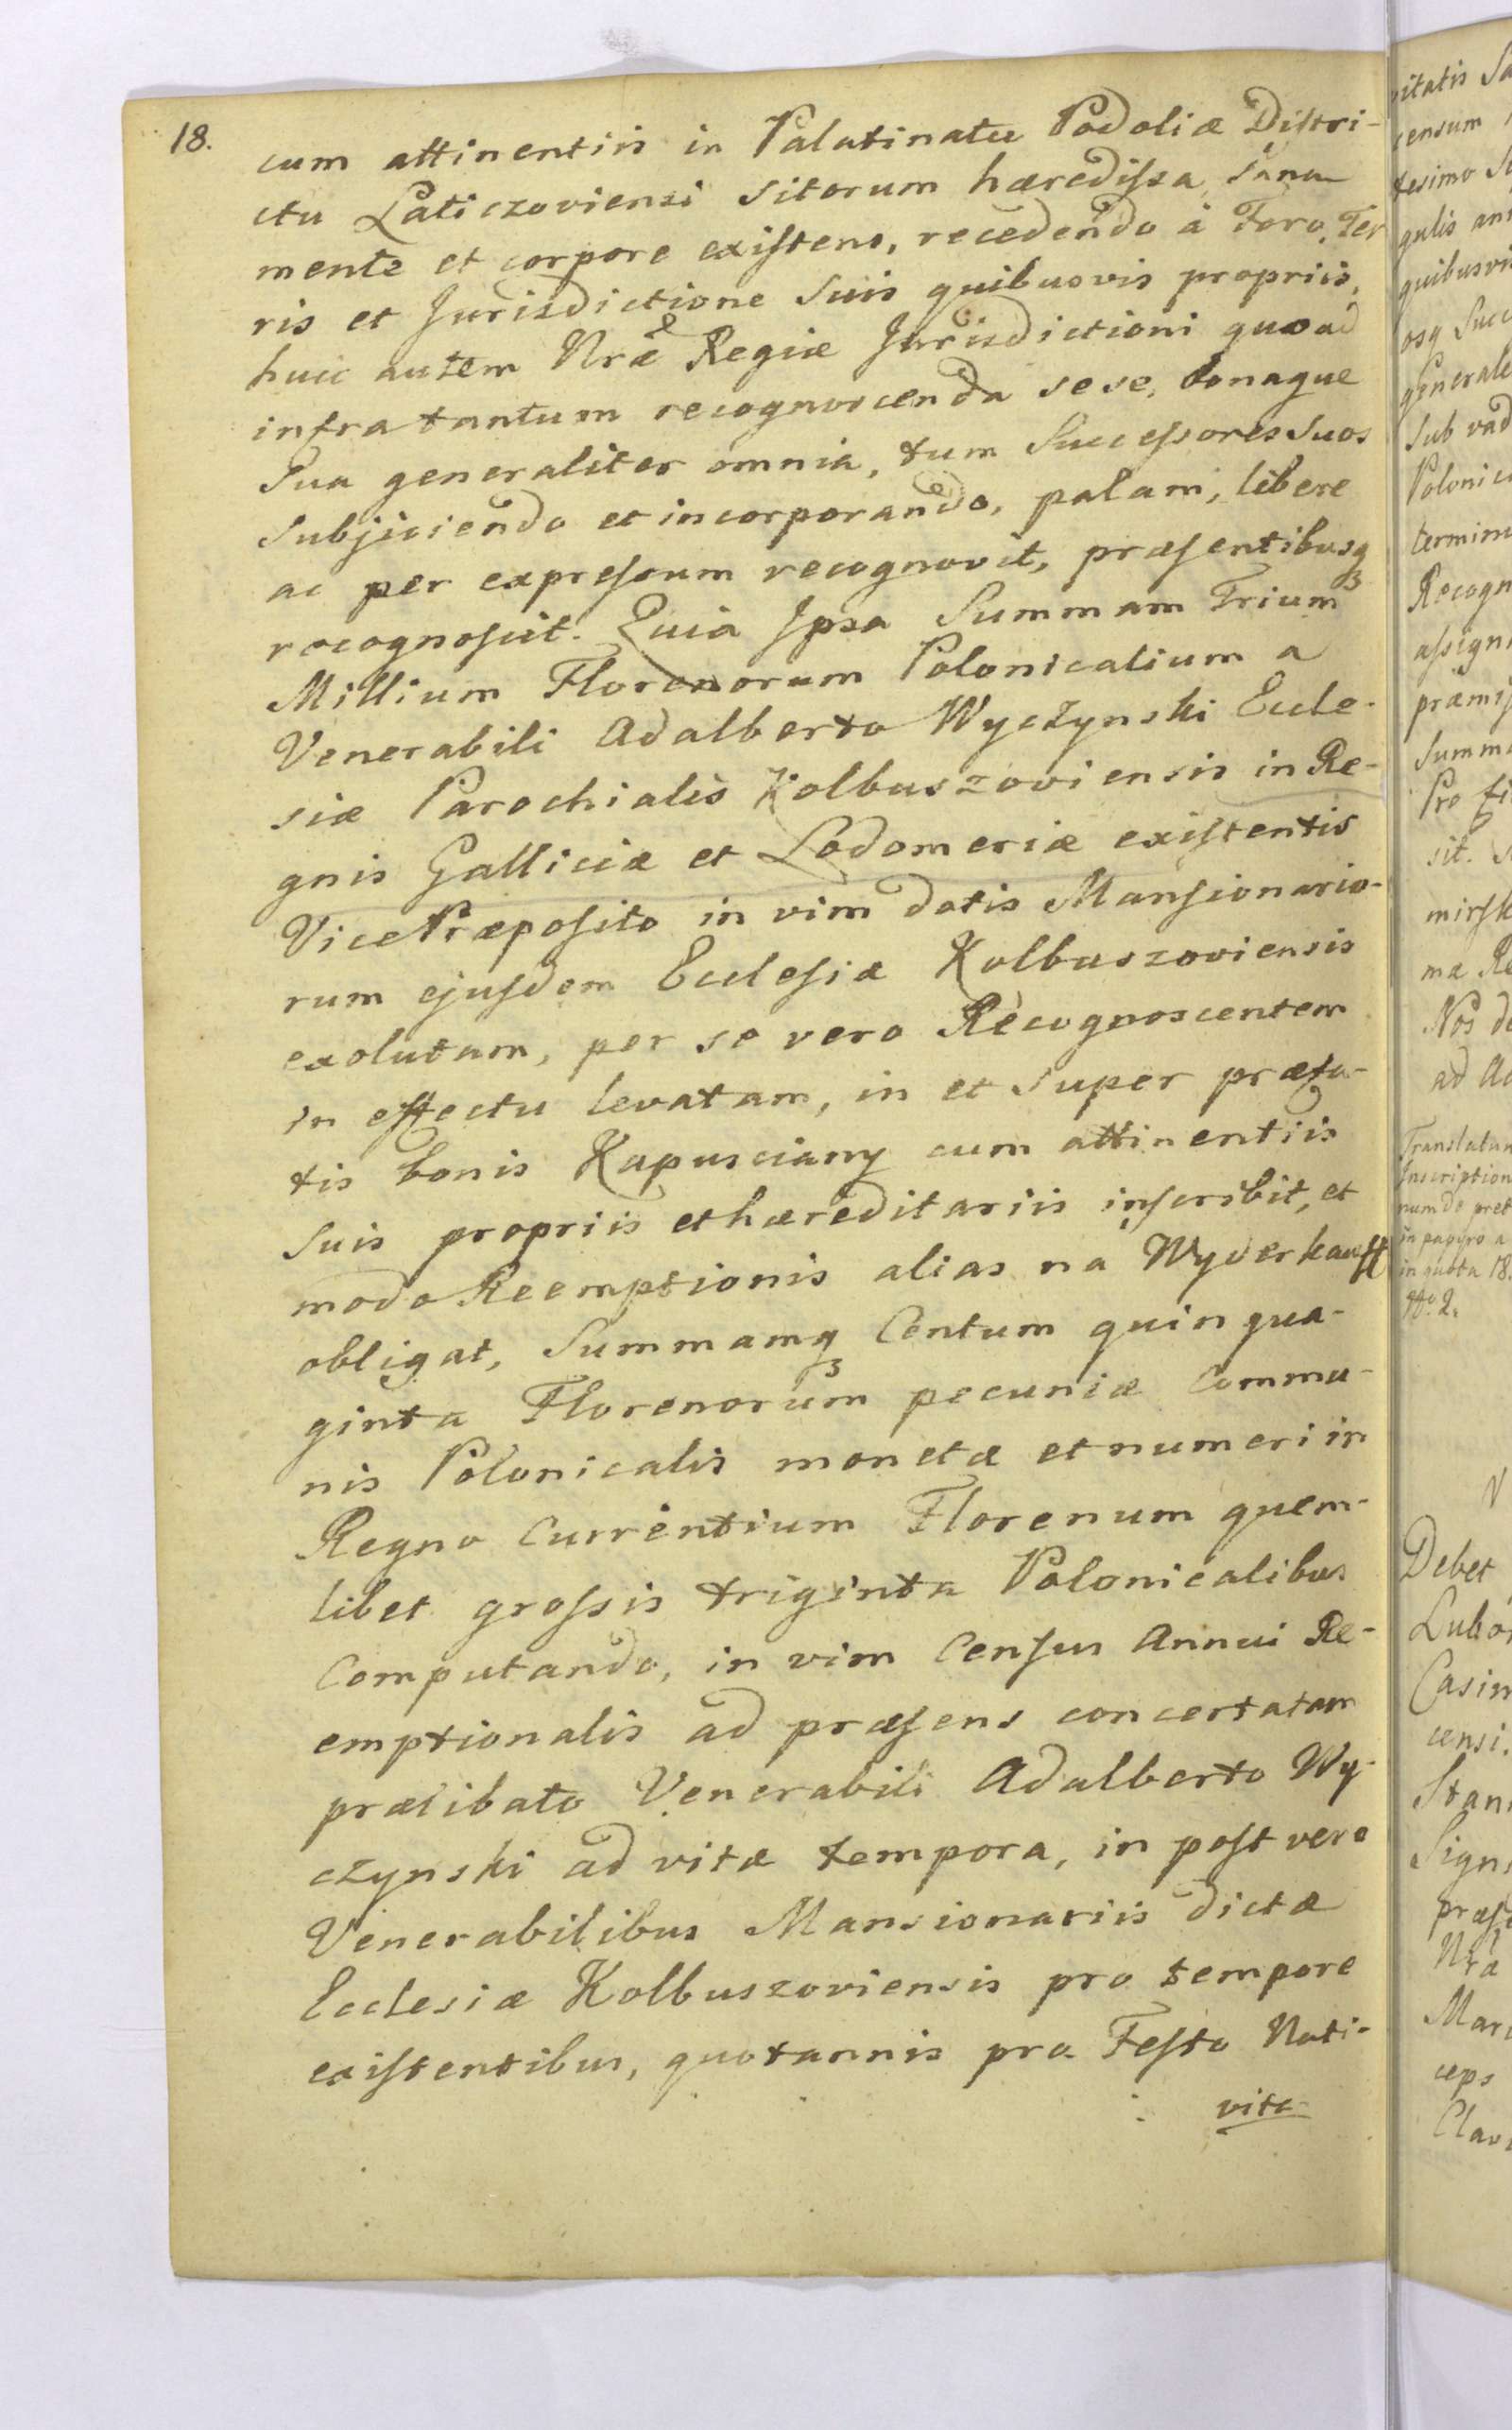 18.
cum attinentiis in Palatinatu Podoliæ Distri-
ctu Laticzoviensi Sitorum hæredissa, Sana
mente et corpore existens, recedendo à Foro, Ter
ris et Jurisdictione Suis quibusvis propriis,
huic autem Nræ Regiæ Jurisdictioni quoad
infra tantum recognoscenda sese, bonaque
Sua generaliter omnia, tum Successores Suos
Subjiciendo et incorporando, palam, libere
ac per expressum recognovit, præsentibusq3
recognoscit. Quia Ipsa Summam Trium
Millium Florenorum Polonicalium a
Venerabili Adalberto Wyczynski Eccle-
siæ Parochialis Kolbuszoviensis in Re-
gnis Galliciæ et Lodomeriæ existentis
Vice Præposito in vim dotis Mansionario-
rum ejusdem Ecclesiæ Kolbuszoviensis
exolutam, per se vero Recognoscentem
in effectu levatam, in et Super præfa-
tis bonis Kapusciany cum attinentiis
Suis propriis et hæreditariis inscribit, et
modo Reemptionis alias na Wyderkauff
obligat, Summamq3 Centum quinqua-
ginta Florenorum pecuniæ Commu-
nis Polonicalis monetæ et numeri in
Regno Currentium Florenum quem-
libet grossis triginta Polonicalibus
Computando, in vim Census Annui Re-
emptionalis ad præsens concertatam
prælibato Venerabili Adalberto Wy-
czynski ad vitæ tempora, in post vero
Venerabilibus Mansionariis dictæ
Ecclesiæ Kolbuszoviensis pro tempore
existentibus, quotannis pro Festo Nati-
vita-